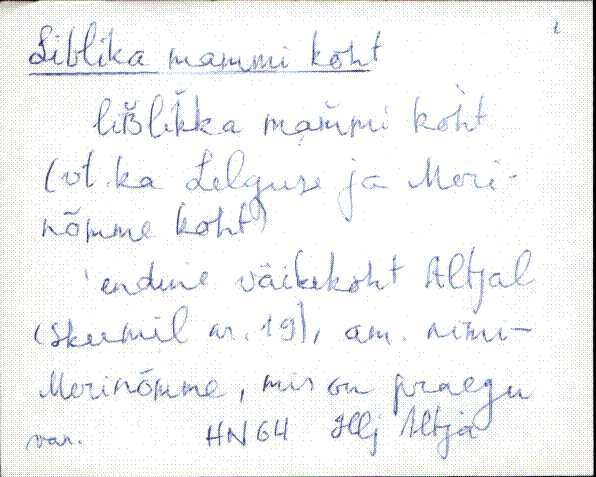 Liblika mammi koht
liʙ̆lik̆ka mam̆mi koh̀t
(vt. ka Lelguse ja Meri-
nõmme koht)
endine väikekoht Altjal
(skeemil nr. 19), am. nimi -
Merinõmme, mis on praegu
var. HN 64 Hlj Altja